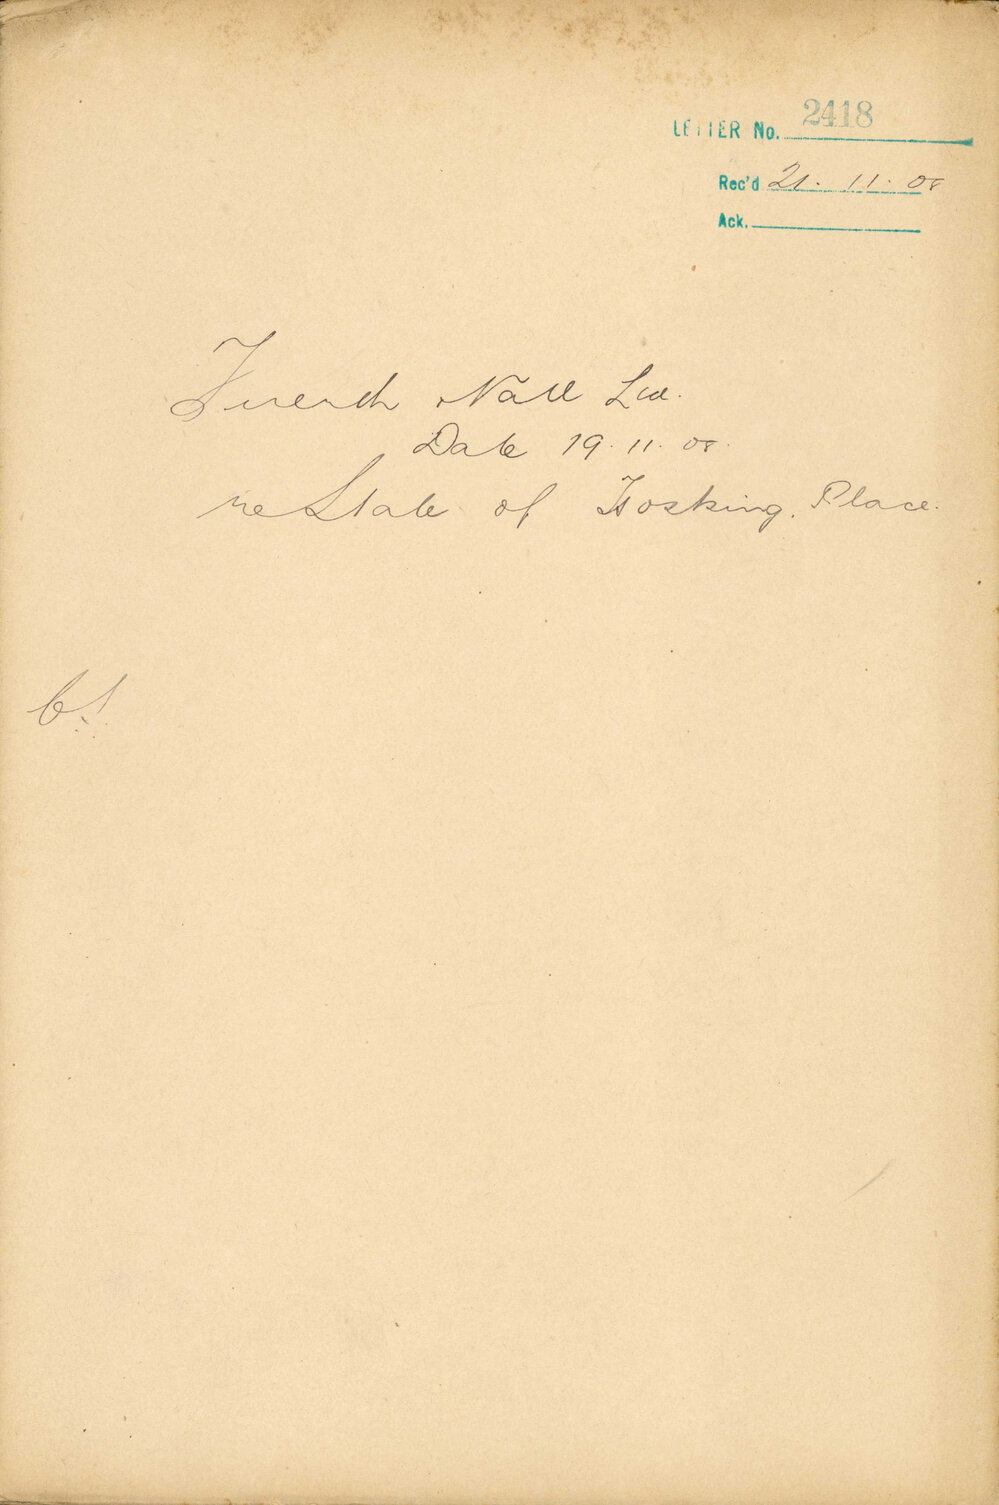 LETTER No. 2418
Rec'd 21. 11. 08
Ack.
French Ltd.
Date 19. 11. 08.
re State of Hosking Place.